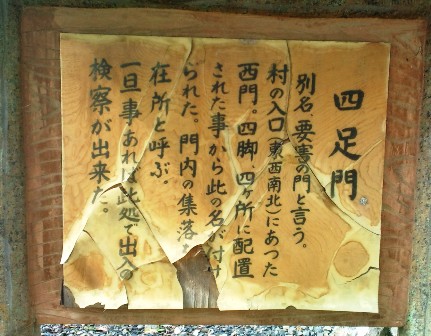 四足門
別名、要害の門と言う。
村の入口(東西南北)にあった
西門。四脚、四ヶ所に配置
された事から此の名が付け
られた。門内の集落
在所と呼ぶ。
一旦事あれば此処で出入の
検察が出来た。